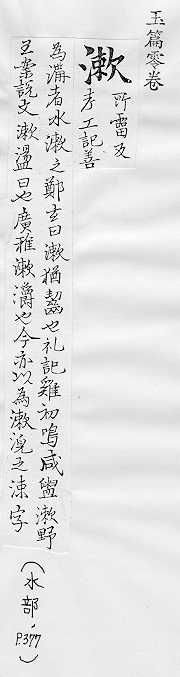 玉篇零卷
漱 所霤反 考工記善
為溝者水漱之鄭玄曰漱猶齧也礼記雞初鳴咸盥漱野
王案說文漱盪口也廣雅漱濯也今亦以為漱浣之涑字
(水部,P.377)